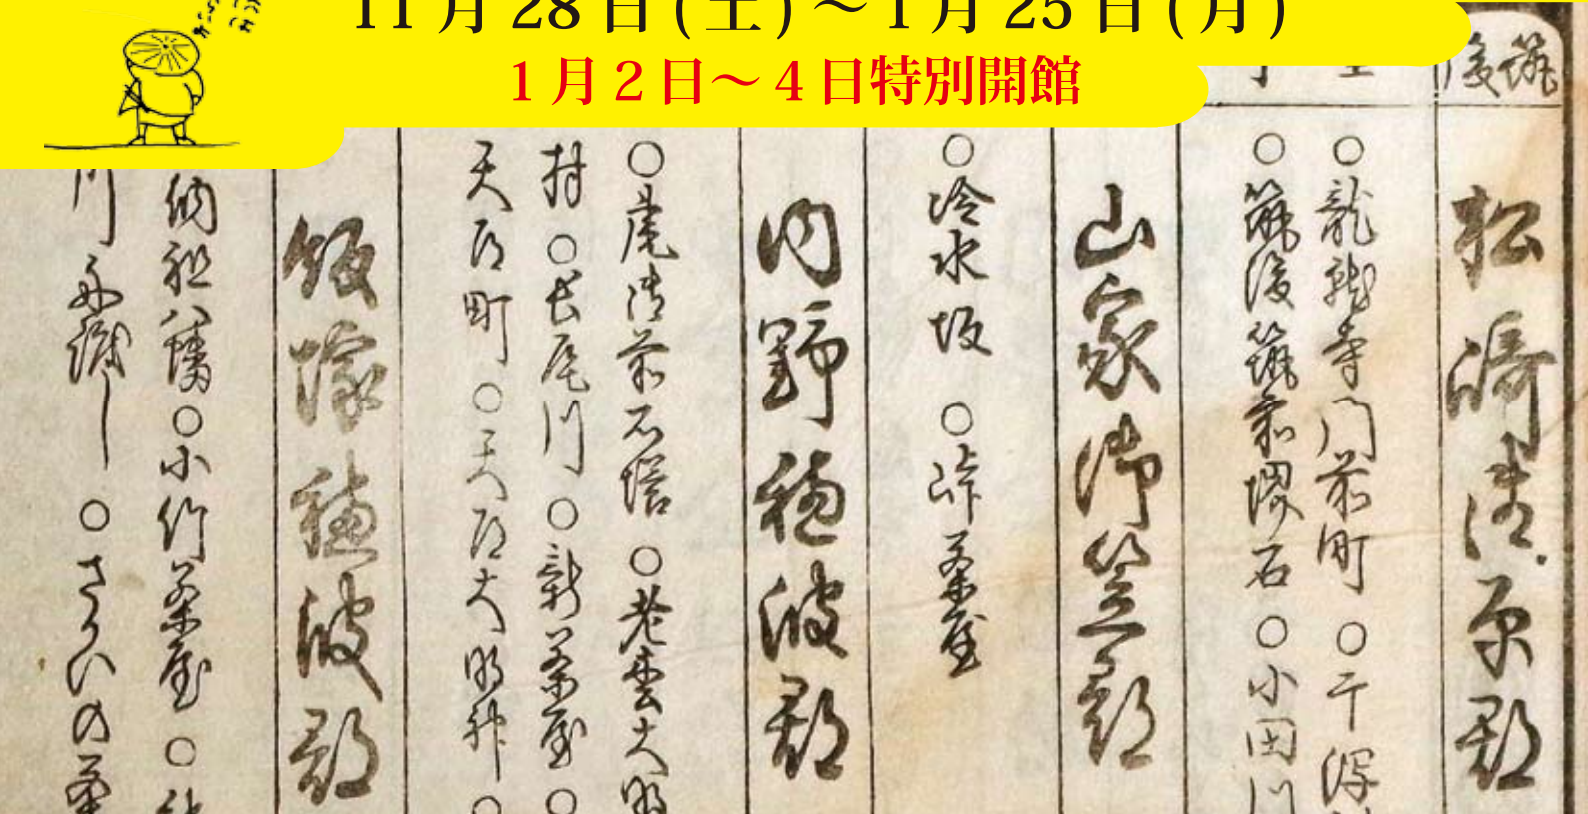 11月28日(土)～1月25日(月)
1月2日～4日特別開館
筑後
松崎 御原郡
○龍靏寺門前町 ○干潟村
○筑後筑前堺石 ○小田川
山家 御笠郡
○冷水坂 ○峠茶屋
内野 穂波郡
○荒清前石塔 ○老雲大明
村 ○長尾川 ○新茶屋 ○
天乃町 ○天乃大明神 ○
飯塚 穂波郡
納祖八幡 ○小竹茶屋 ○
川 舟渡し ○さかいの茶